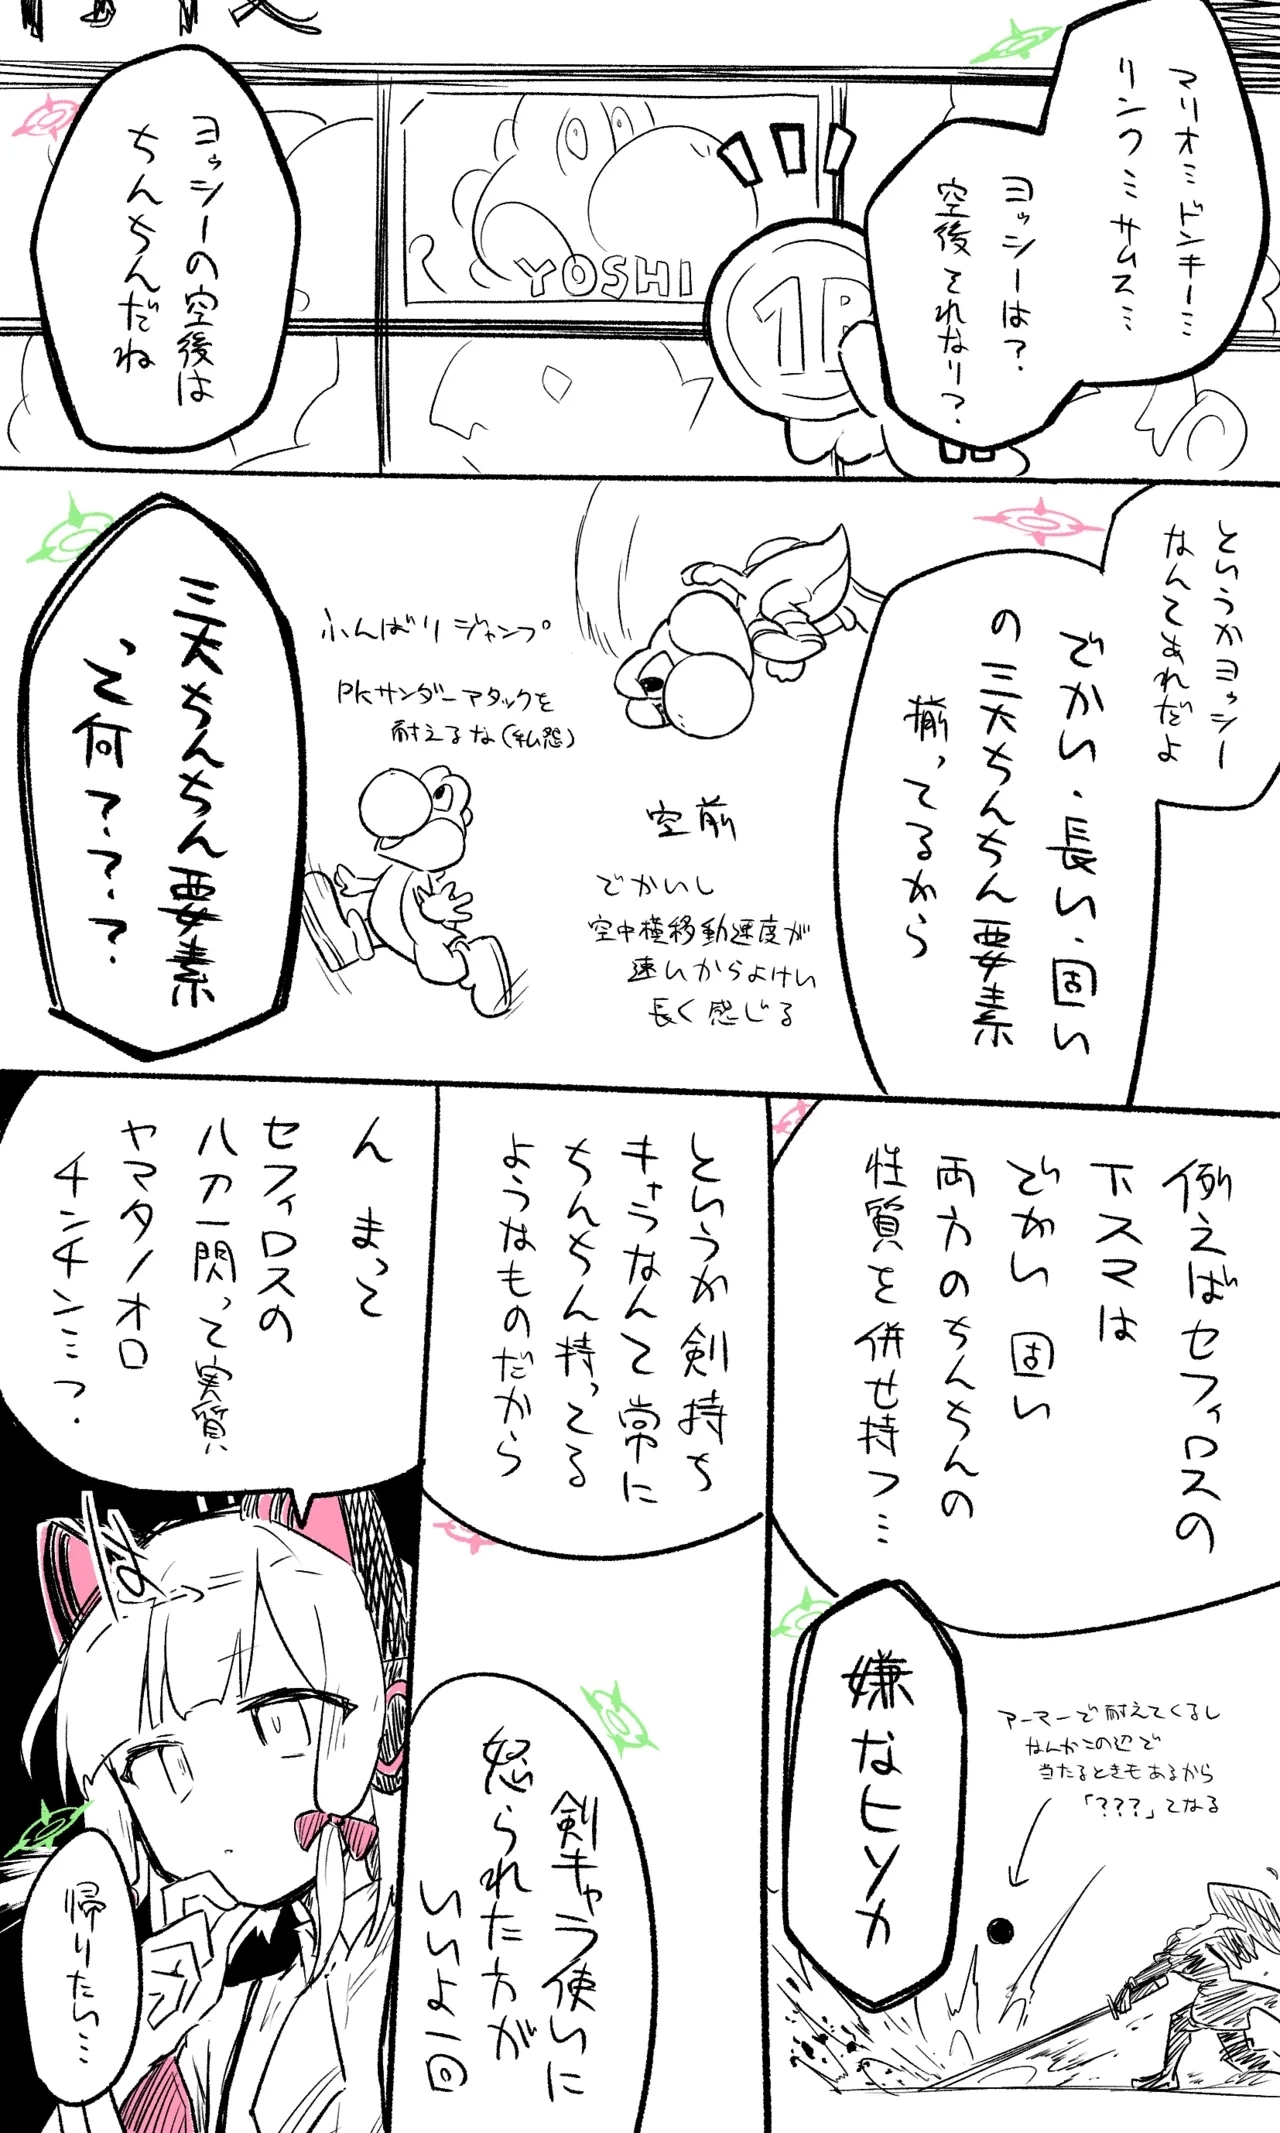 マリオ…ドンキー…
リンク…サムス…
ヨッシーは？
空後それなり？
ヨッシーの空後は
ちんちんだね
YOSHI
というかヨッシー
なんてあれだよ
でかい・長い・固い
の三大ちんちん要素
揃ってるから
空前
でかいし
空中横移動速度が
速いからよけい
長く感じる
ふんばりジャンプ
PKサンダーアタックを
耐えるな(私怨)
三大ちんちん要素
って何？？？
例えばセフィロスの
下スマは
でかい 固い
両方のちんちんの
性質を併せ持つ…
嫌なヒソカ
アーマーで耐えてくるし
なんかこの辺で
当たるときもあるから
「？？？」てなる
というか剣持ち
キャラなんて常に
ちんちん持ってる
ようなものだから
剣キャラ使いに
怒られた方が
いいよ一回
ん まって
セフィロスの
八刀一閃って実質
ヤマタノオロ
チンチン…っ？
帰りたい…